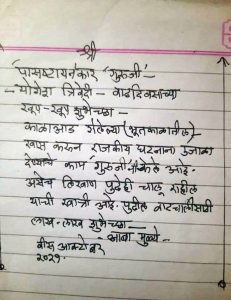 श्री
'पासष्टायन'कार 'गुरुजी' -
योगेश त्रिवेदी - वाढदिवसाच्या
खूप-खूप शुभेच्छा -
काळाआड गेलेल्या (भूतकाळातील)
खास करून राजकीय घटनांना उजाळा
देण्याचं काम गुरुजींनी केलं आहे.
असेच लिखाण पुढेही चालू राहील
याची खात्री आहे. पुढील वाटचालीसाठी
लाख-लाख शुभेच्छा -
- आबा मुळ्ये -
वीस आक्टोबर
२०२१